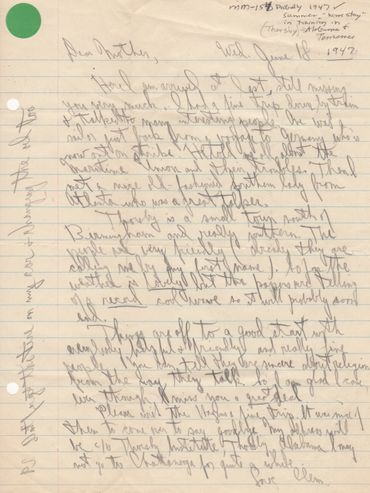 MM-154 Probably 1947
summer, "home stay"
in training in
(Thorsby) Alabama &
Tennessee
Dear Mother,
Wed. June 18
1947
Here I am arrived at last, still missing
you very much. I had a fine trip down by train
& talked to many interesting people. One was a
sailor just back from a voyage to Germany who is
now out on strike. He told me all about the
Maritime Union and other troubles. Then I
met a nice old fashioned southern lady from
Atlanta who was a great talker.
Thorsby is a small town south of
Birmingham and really southern. The
people are very friendly & already they are
calling me by my first name. So far the
weather is cool but the papers are telling
of a record cool wave so it will probably soon
end.
Things are off to a good start with
everybody helpful & friendly and really fine
people. You can tell they are sincere about religion
from the way they talk so I am in good care,
even though I miss you a great deal.
Please wish the a fine trip. It was nice of
them to come over to say goodbye. My address will
be c/o Thorsby Institute Thorsby, Alabama. I may
not go to Chattanooga for quite a while.
Love Clem.
PS Got rid of the tire on my car & changing the old too